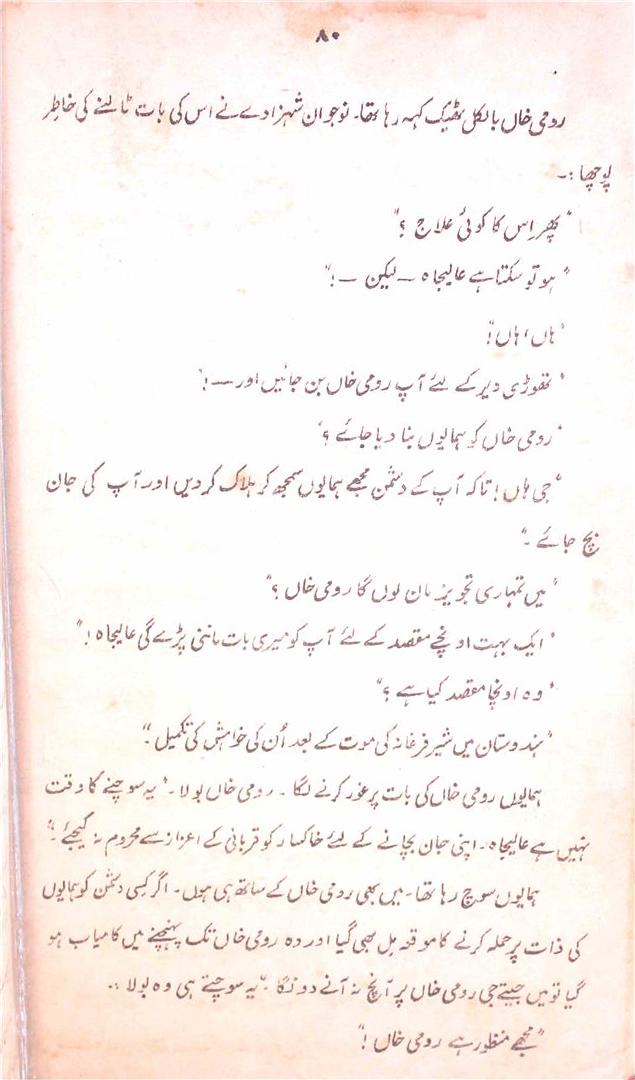 ۸۰
رومی خاں بالکل ٹھیک کہہ رہا تھا۔ نوجوان شہزادے نے اس کی بات ٹالنے کی خاطر
پوچھا :۔
"پھر اِس کا کوئی علاج ؟"
"ہو تو سکتا ہے عالیجاہ — لیکن — !"
"ہاں، ہاں!"
"تھوڑی دیر کے لئے آپ رومی خاں بن جائیں اور — !"
"رومی خاں کو ہمایوں بنا دیا جائے ؟"
"جی ہاں ! تاکہ آپ کے دشمن مجھے ہمایوں سمجھ کر ہلاک کر دیں اور آپ کی جان
بچ جائے ۔"
"میں تمہاری تجویز مان لوں گا رومی خاں ؟"
"ایک بہت اونچے مقصد کے لئے آپ کو میری بات ماننی پڑے گی عالیجاہ !"
"وہ اونچا مقصد کیا ہے ؟"
"ہندوستان میں شیر فرغانہ کی موت کے بعد اُن کی خواہش کی تکمیل ۔"
ہمایوں رومی خاں کی بات پر غور کرنے لگا ۔ رومی خاں بولا ۔ "یہ سوچنے کا وقت
نہیں ہے عالیجاہ ۔ اپنی جان بچانے کے لئے خاکسار کو قربانی کے اعزاز سے محروم نہ کیجئے ۔"
ہمایوں سوچ رہا تھا ۔ میں بھی رومی خاں کے ساتھ ہی ہوں ۔ اگر کسی دشمن کو ہمایوں
کی ذات پر حملہ کرنے کا موقعہ مل بھی گیا اور وہ رومی خاں تک پہنچنے میں کامیاب ہو
گیا تو میں جیتے جی رومی خاں پر آنچ نہ آنے دونگا ۔ "یہ سوچتے ہی وہ بولا :۔
"مجھے منظور ہے رومی خاں !"